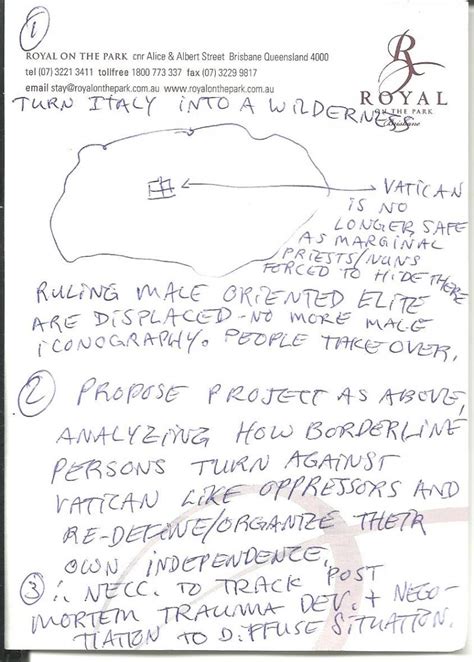 1
ROYAL ON THE PARK cnr Alice & Albert Street Brisbane Queensland 4000
tel (07) 3221 3411 tollfree 1800 773 337 fax (07) 3229 9817
email stay@royalonthepark.com.au www.royalonthepark.com.au
R
ROYAL
ON THE PARK
Brisbane
TURN ITALY INTO A WILDERNESS
VATICAN
IS NO
LONGER SAFE
AS MARGINAL
PRIESTS/NUNS
FORCED TO HIDE THERE
RULING MALE ORIENTED ELITE
ARE DISPLACED - NO MORE MALE
ICONOGRAPHY. PEOPLE TAKE OVER.
2 PROPOSE PROJECT AS ABOVE,
ANALYZING HOW BORDERLINE
PERSONS TURN AGAINST
VATICAN LIKE OPPRESSORS AND
RE-DEFINE/ORGANIZE THEIR
OWN INDEPENDENCE.
3 ∴ NECC. TO TRACK POST
MORTEM TRAUMA DEV. + NEGO-
TIATION TO DIFFUSE SITUATION.